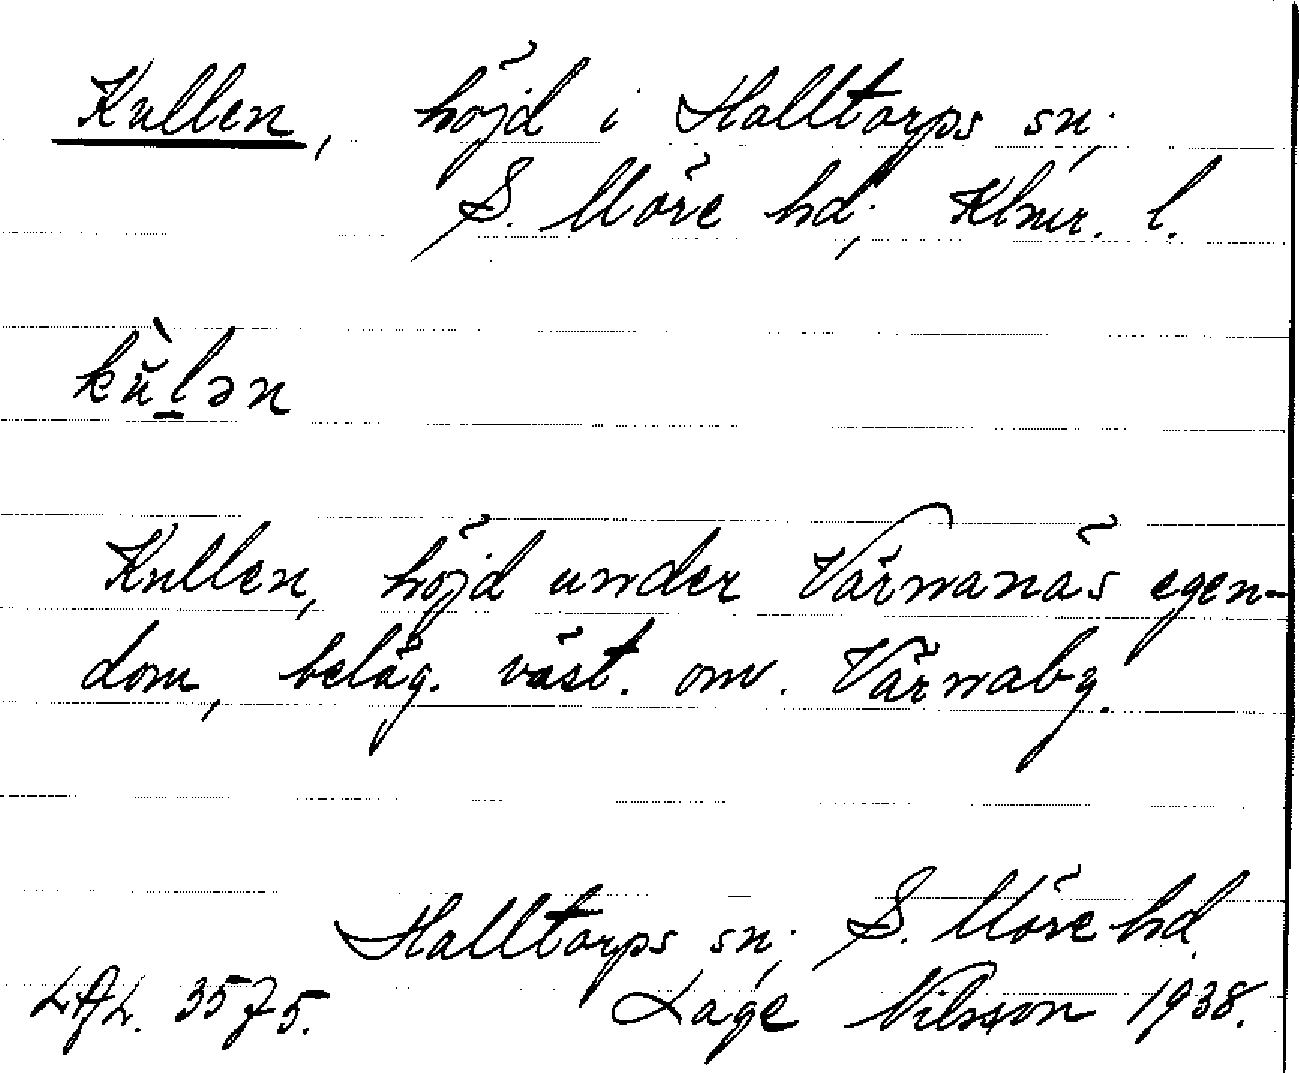 Kullen, höjd i Halltorps sn;
S. Möre hd; Klmr. l.
kŭ̀l̠ən
Kullen, höjd under Värnanäs egen-
dom, beläg. väst. om. Värnaby.
Halltorps sn; S. Möre hd
LAL. 3575. Lage Nilsson 1938.